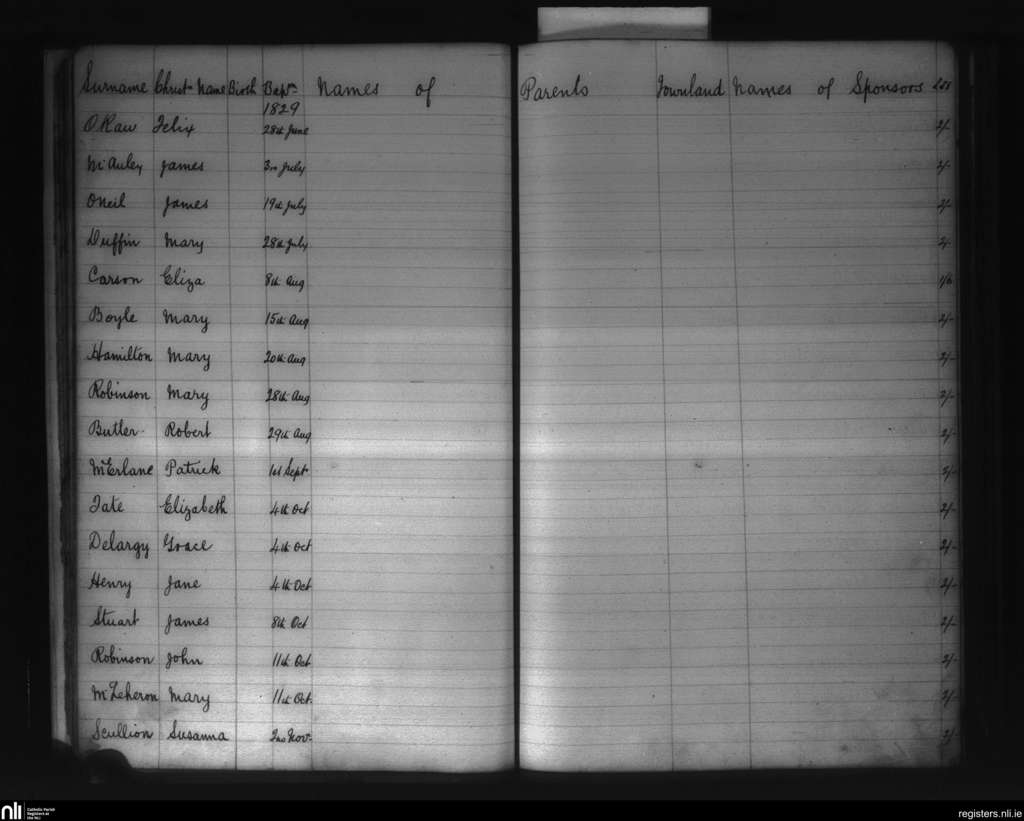 Surname Christn Name Birth Bapsm Names of Parents Townland Names of Sponsors
1829
O'Raw Felix 28th June 2/-
McAuley James 3rd July 2/-
O'Neil James 19th July 2/-
Duffin Mary 28th July 2/-
Carson Eliza 8th Aug 1/6
Boyle Mary 15th Aug 2/-
Hamilton Mary 20th Aug 2/-
Robinson Mary 28th Aug 2/-
Butler Robert 29th Aug 2/-
McErlane Patrick 1st Sept 2/-
Tate Elizabeth 4th Oct 2/-
Delargy Grace 4th Oct 2/-
Henry Jane 4th Oct 2/-
Stuart James 8th Oct 2/-
Robinson John 11th Oct 2/-
Mary 11th Oct. 2/-
Scullion Susanna 2nd Nov. 2/-
nli Catholic Parish Registers at the NLI registers.nli.ie